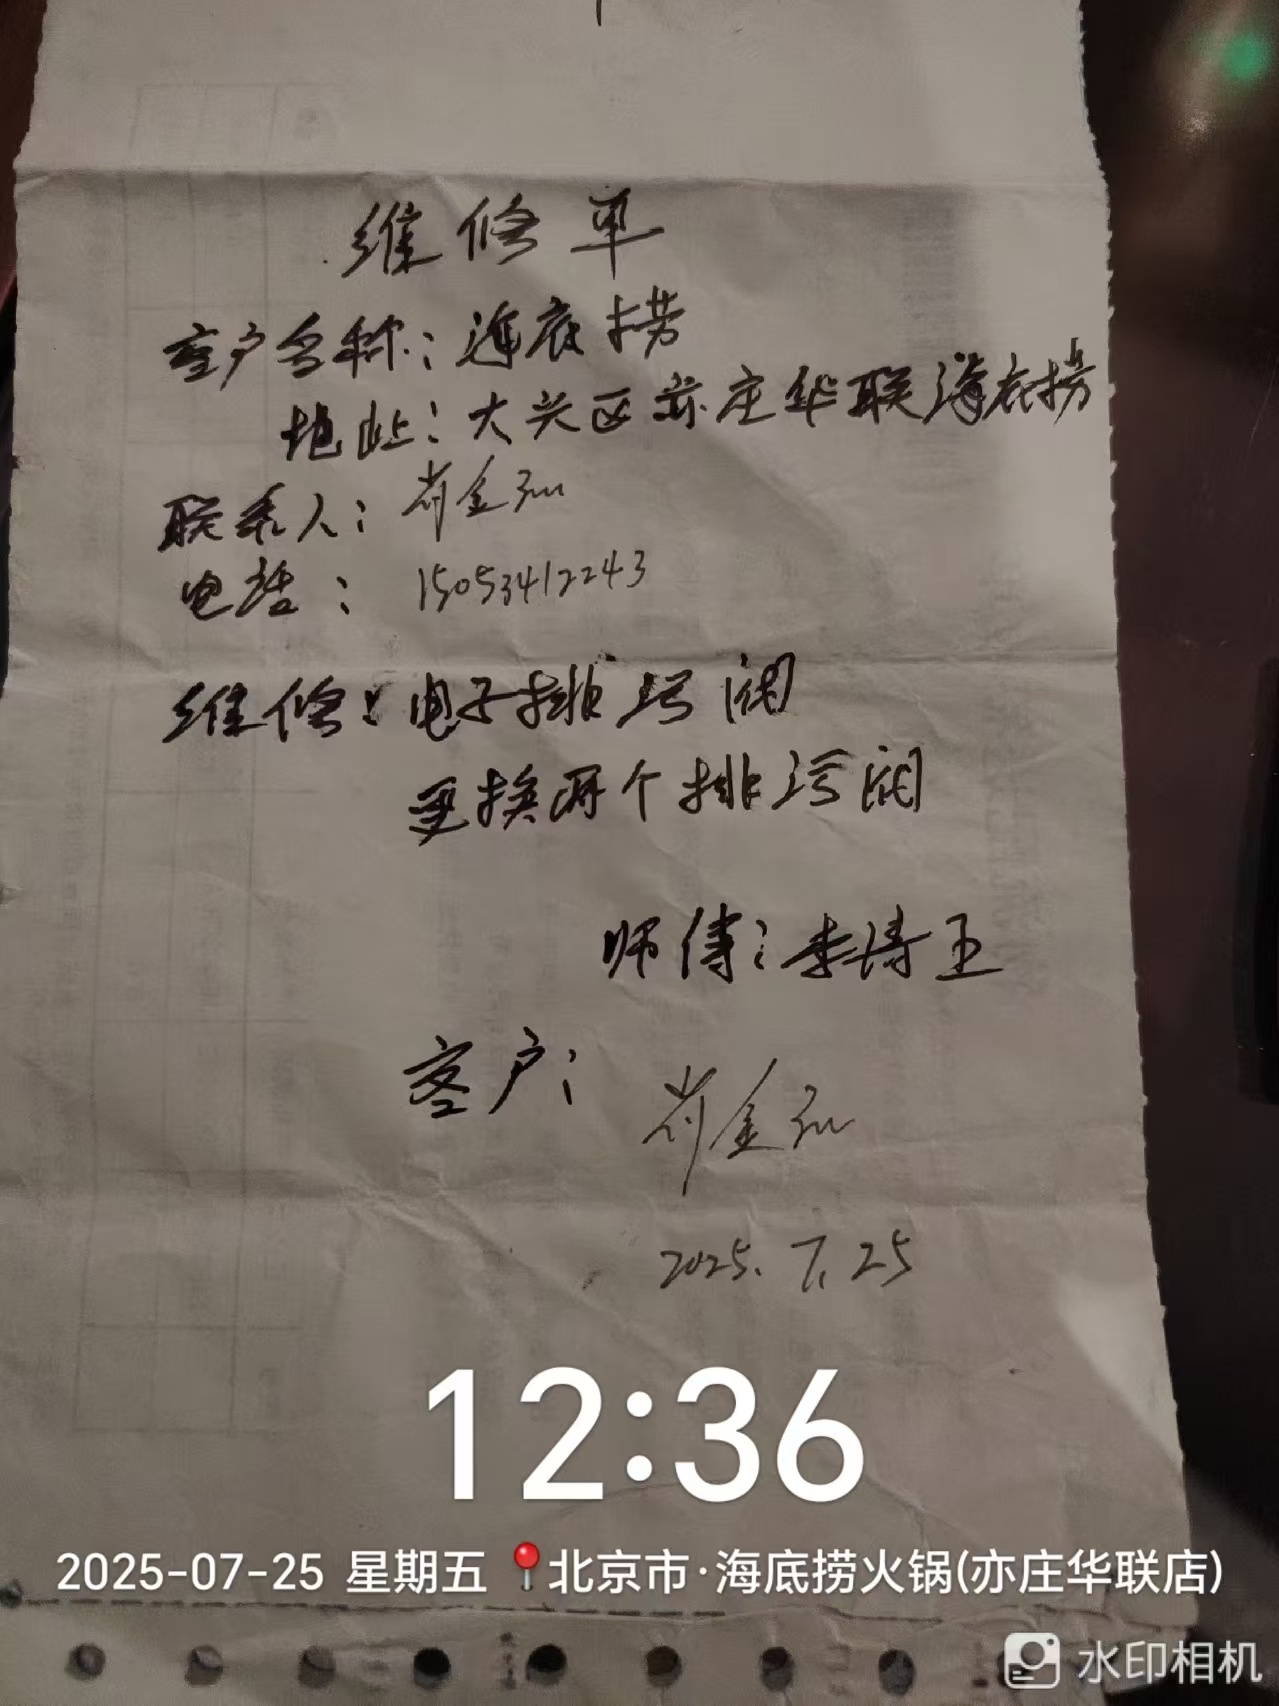 维修单
客户名称：海底捞
地址：大兴区亦庄华联海底捞
联系人：肖金
电话：15053412243
维修：电子排污阀
更换两个排污阀
师傅：李涛王
客户：
肖金
2025.7.25
12:36
2025-07-25 星期五 北京市·海底捞火锅(亦庄华联店)
水印相机